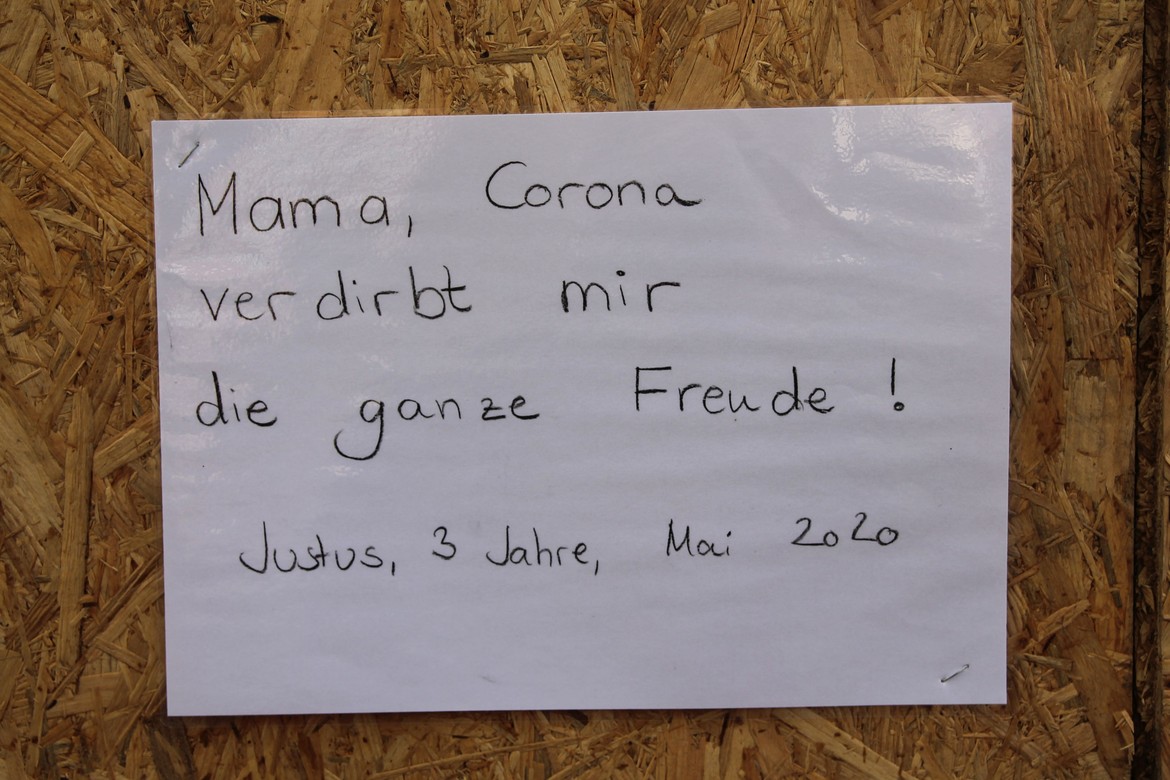 Mama, Corona
verdirbt mir
die ganze Freude !
Justus, 3 Jahre, Mai 2020